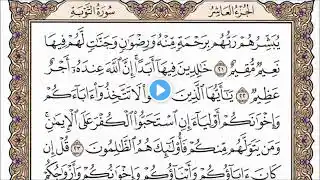 الجزء العاشر سورة التوبة
يُبَشِّرُهُمْ رَبُّهُم بِرَحْمَةٍ مِّنْهُ وَرِضْوَٰنٍ وَجَنَّٰتٍ لَّهُمْ فِيهَا
نَعِيمٌ مُّقِيمٌ ٢١ خَٰلِدِينَ فِيهَآ أَبَدًا إِنَّ ٱللَّهَ عِندَهُۥٓ أَجْرٌ
عَظِيمٌ ٢٢ يَٰٓأَيُّهَا ٱلَّذِينَ لَا تَتَّخِذُوٓا۟ ءَابَآءَكُمْ
وَإِخْوَٰنَكُمْ أَوْلِيَآءَ إِنِ ٱسْتَحَبُّوا۟ ٱلْكُفْرَ عَلَى ٱلْإِيمَٰنِ
وَمَن يَتَوَلَّهُم مِّنكُمْ فَأُو۟لَٰٓئِكَ هُمُ ٱلظَّٰلِمُونَ ٢٣ قُلْ إِن
كَانَ ءَابَآؤُكُمْ وَأَبْنَآؤُكُمْ وَإِخْوَٰنُكُمْ وَأَزْوَٰجُكُمْ